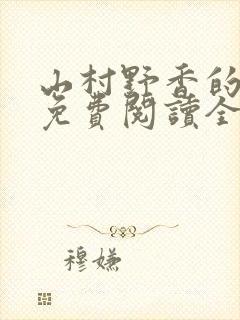 山村野香的
免費閱讀全
穆嫌